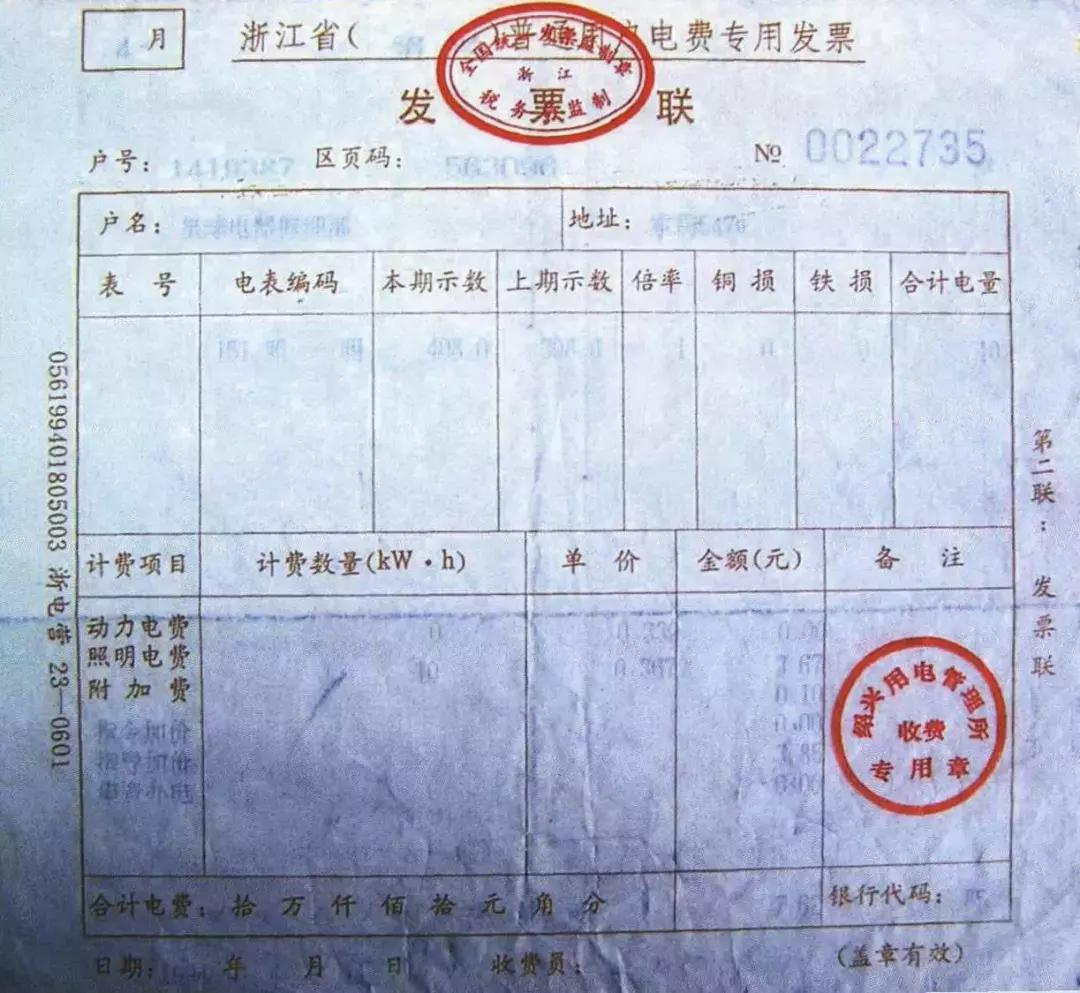 4 月
浙江省( )普通用电电费专用发票
全国统一发票监制章
浙江
税务局监制
发票联
户号： 区页码： № 0022735
户名： 地址：
表号 电表编码 本期示数 上期示数 倍率 铜损 铁损 合计电量
181 照 408.0 398.0 1 0 0 10
计费项目 计费数量(kW·h) 单价 金额(元) 备注
动力电费 0 0.00
照明电费 10 0.367 3.67
附加费 0.10
指令加价 0.00
指导加价
绍兴用电管理所
收费
专用章
合计电费： 拾万仟佰拾元角分 银行代码：
日期： 年 月 日 收费员： (盖章有效)
第二联：发票联
056199401805003 浙电营 23—0601